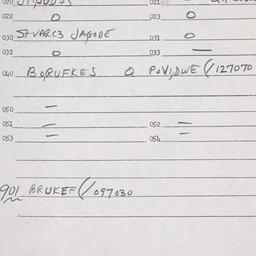 022 O 023 O
030 ST VARCS JAGODE 031 O
032 O 033 —
040 BORUFKES Q POVIDWE (/127070
050 —
051 — 052 =
053 — 054
901 BRUKEF (/097030